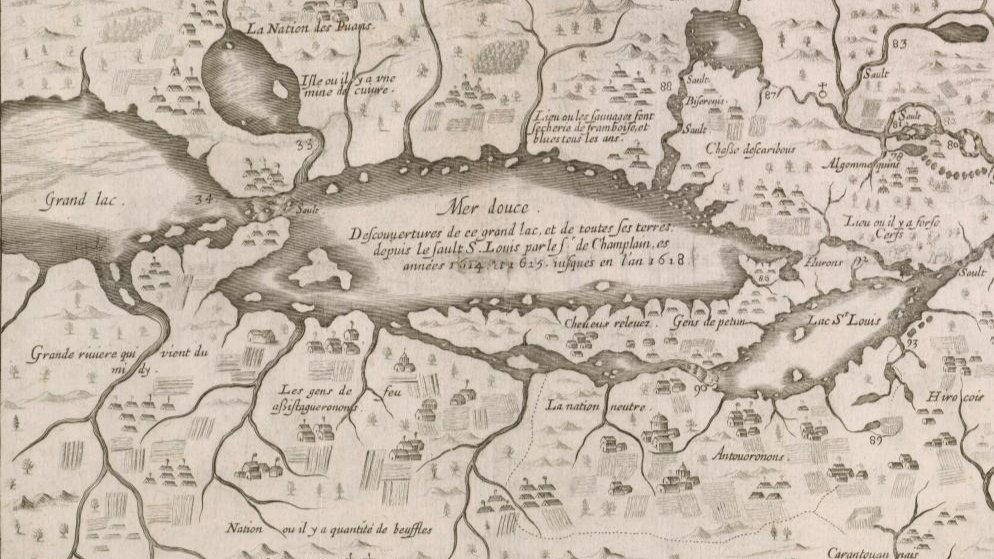 La Nation des Puans.
83
Isle ou il y a vne
mine de cuiure.
Sault
88
Sault
87
Biserenis
Lieu ou les sauuages font
secherie de framboise, et
blues tous les ans.
Sault
Sault
81
82
80
33
Chasse des caribous
78
Algommequins
Grand lac.
34
Sault
Mer douce.
Descouuertures de ce grand lac, et de toutes ses terres,
depuis le sault St. Louis par le sr. de Champlain, es
années 1614. et 1615. iusques en l'an 1618
Lieu ou il y a forse
Cerfs
Hurons
Sault
86
Cheueus releuez.
Gens de petun
Lac St Louis
93
Grande riuiere qui vient du
midy.
Les gens de feu
assistagueronons
90
La nation neutre.
Hirocois
89
Antouoronons.
Nation ou il y a quantité de beuffles
Carantouannais